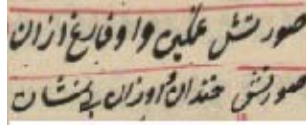 صورتش غمگین و او فارغ ازان
صورتش خندان و او زان بی‌نشان